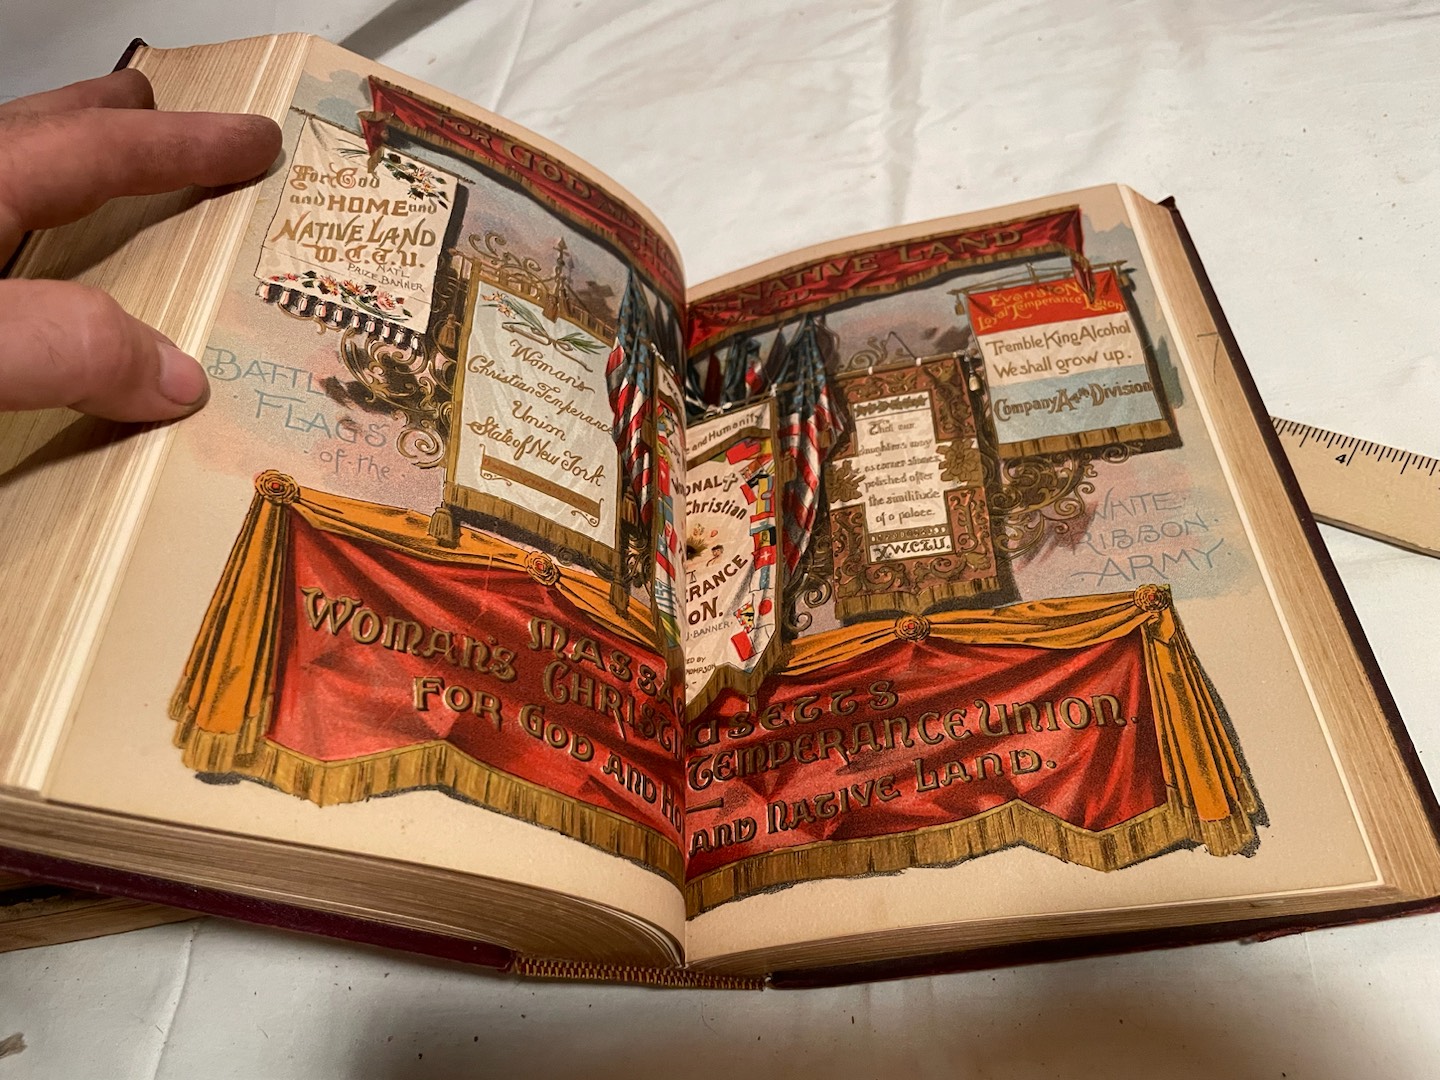 FOR GOD AND HO
NATIVE LAND
For God
and HOME and
NATIVE LAND
W.C.T.U.
NAT'L
PRIZE BANNER
BATTL
FLAGS
of the
Woman's
Christian Temperance
Union
State of New York
and Humanity
ONAL
Christian
T
ERANCE
ON.
BANNER
ED BY
OMPSON
That our
daughters may
be as corner stones,
polished after
the similitude
of a palace.
Y.W.C.T.U.
Evenston
Loyal Temperance Legion
Tremble King Alcohol
We shall grow up.
Company A 4th Division
WHITE
RIBBON
ARMY
MASSACHUSETTS
WOMAN'S CHRISTI TEMPERANCE UNION.
FOR GOD AND HO AND NATIVE LAND.
4